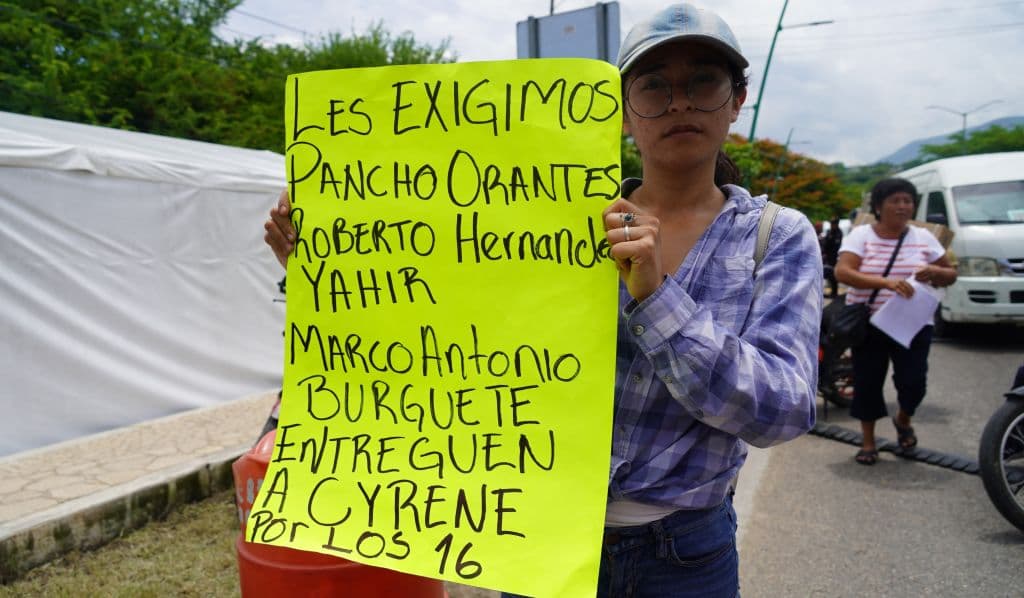 LES EXIGIMOS
PANCHO ORANTES
ROBERTO Hernande
YAHIR
MARCO Antonio
BURGUETE
ENTREGUEN
A CYRENE
POR LOS 16